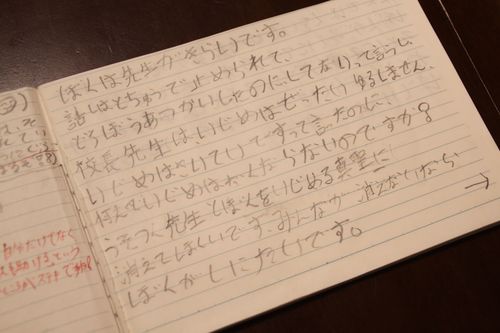 ぼくは先生がきらいです。
話しはとちゅうで止められて、
どろぼうあつかいしたのにしてないって言うし、
校長先生は、いじめはぜったいゆるしません、
いじめはさいていですって言ったのに、
何んでいじめはなくならないのですか?
うそつき先生とぼくをいじめる
消えてほしいです。みんなが消えないなら
→
ぼくがしにたいです。
自分だけでなく